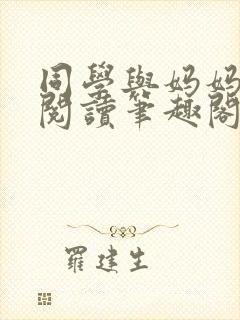 同學與媽媽
閱讀筆趣閣
羅建生